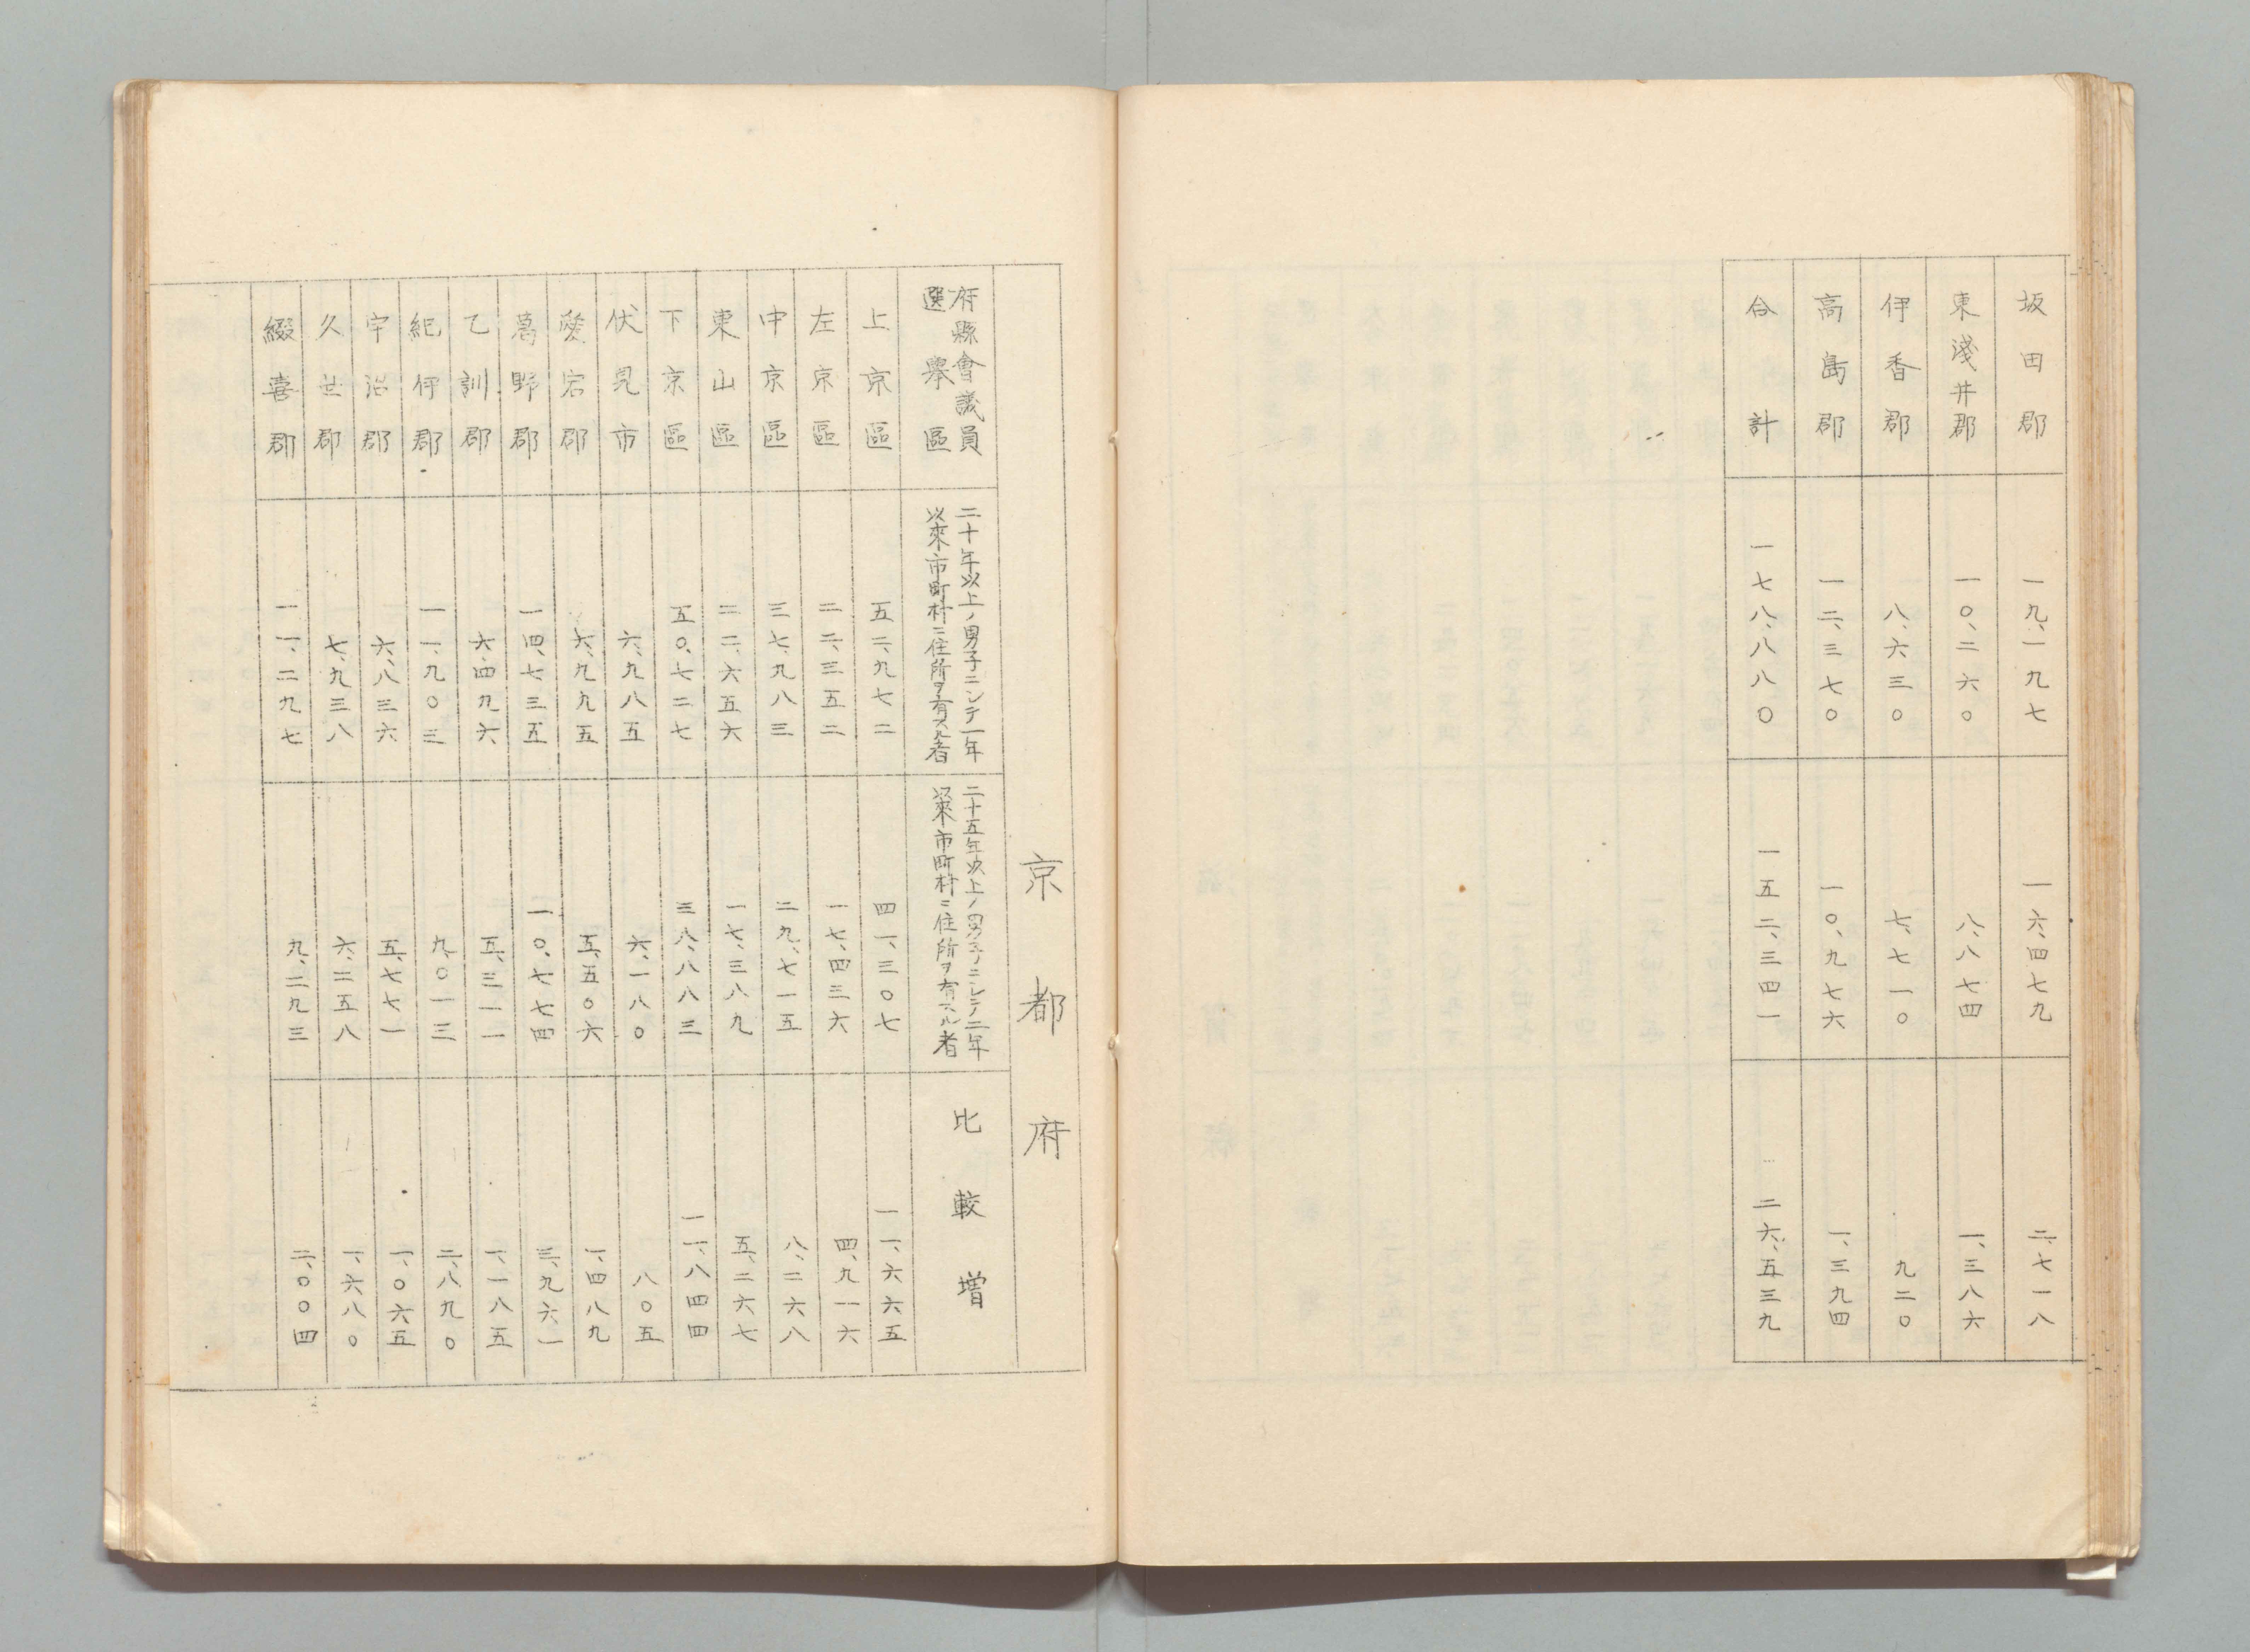 坂田郡 一九、一九七 一六、四七九 二、七一八
東淺井郡 一〇、二六〇 八、八七四 一、三八六
伊香郡 八、六三〇 七、七一〇 九二〇
高島郡 一二、三七〇 一〇、九七六 一、三九四
合計 一七八、八八〇 一五二、三四一 二六、五三九
京都府
府縣會議員
選擧區
二十年以上ノ男子ニシテ一年
以來市町村ニ住所ヲ有スル者
二十五年以上ノ男子ニシテ二年
以來市町村ニ住所ヲ有スル者
比較增
上京區 五二、九七二 四一、三〇七 一一、六六五
左京區 二二、三五二 一七、四三六 四、九一六
中京區 三七、九八三 二九、七一五 八、二六八
東山區 二二、六五六 一七、三八九 五、二六七
下京區 五〇、七二七 三八、八八三 一一、八四四
伏見市 六、九八五 六、一八〇 八〇五
愛宕郡 六、九九五 五、五〇六 一、四八九
葛野郡 一四、七三五 一〇、七七四 三、九六一
乙訓郡 六、四九六 五、三一一 一、一八五
紀伊郡 一一、九〇三 九、〇一三 二、八九〇
宇治郡 六、八三六 五、七七一 一、〇六五
久世郡 七、九三八 六、二五八 一、六八〇
綴喜郡 一一、二九七 九、二九三 二、〇〇四